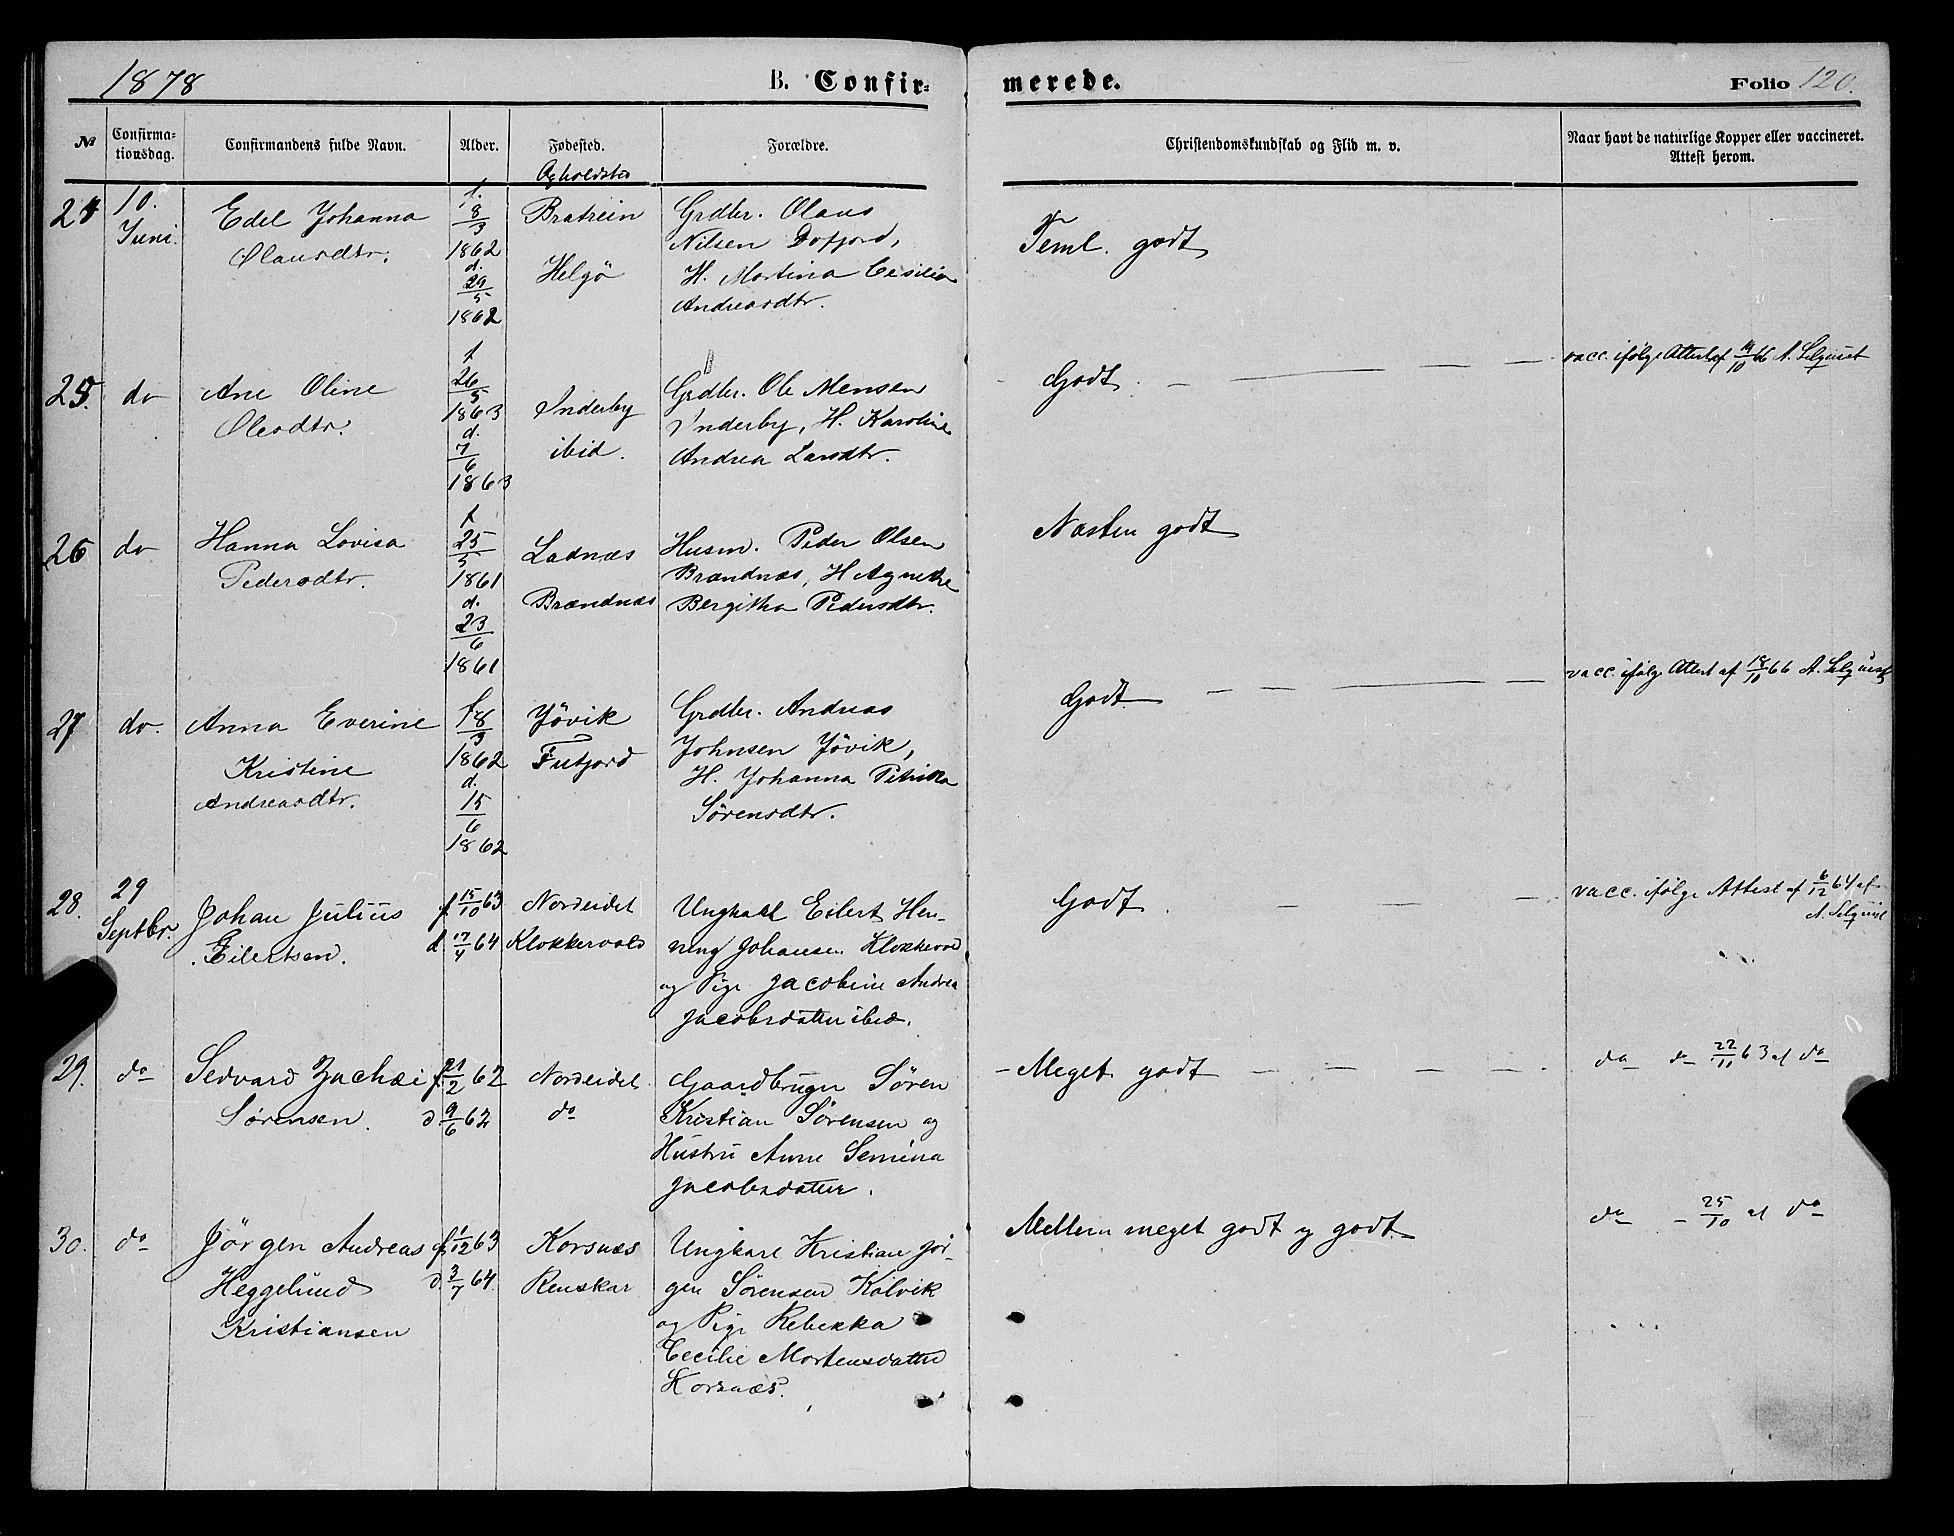 1878
B. Confir-
merede.
Folio 120.
No
Confirma-
tionsdag.
Confirmandens fulde Navn.
Alder.
Fødested.
Opholdsted
Forældre.
Christendomskundskab og Flid m. v.
Naar havt de naturlige Kopper eller vaccineret.
Attest herom.
24
10.
Juni.
Edel Johanna
Olausdtr.
f.
18/3
1862
d.
29/5
1862
Bratrein
Helgö
Grdbr. Olaus
Nilsen Dofjord,
H. Martina Cesilia
Andreasdtr.
Teml. godt
25.
do
Ane Oline
Olesdtr.
f.
26/5
1863
d.
7/6
1863
Inderby
ibid.
Grdbr. Ole Mensen
Inderby, H. Karoline
Andrea Larsdtr.
Godt. — — — —
vacc. ifølge Attest af 14/10 66 A. Selqvist
26
do
Hanna Lovisa
Pedersdtr.
f.
25/5
1861
d.
23/6
1861
Ladnæs
Brændnæs
Husm. Peder Olsen
Brændnæs, H. Agnethe
Bergitha Pedersdtr.
Næsten godt
27
do.
Anna Everine
Kristine
Andreasdtr.
f.
18/3
1862
d.
15/6
1862
Jövik
Futfjord
Grdbr. Andreas
Johnsen Jövik,
H. Johanna Petrikka
Sörensdtr.
Godt — — — —
vacc. ifølge Attest af 18/10 66 A. Selqvist
28.
29
Septbr.
Johan Julius
Eilertsen.
f. 15/10 63
d. 17/4 64
Nordeidet
Klokkervold
Ungkarl Eilert Hen-
ning Johansen Klokkervold
og Pige Jacobine Andrea
Jacobsdatter ibid.
Godt. — — — —
vacc. ifølge Attest af 6/12 64 af
A. Selqvist
29.
do
Sedvard Zachæi
Sørensen.
f. 21/2 62
d. 9/6 62
Nordeidet
do
Gaardbruger Sören
Kristian Sørensen og
Hustru Anne Semina
Jacobsdatter.
- Meget godt — — — —
do do 22/11 63 af do
30.
do
Jörgen Andreas
Heggelund
Kristiansen
f. 1/12 63
d. 3/7 64.
Korsnæs
Renskar
Ungkarl Kristian Jör-
gen Sørensen Kolvik
og Pige Rebekka
Cecilie Mortensdatter
Korsnæs.
Mellem meget godt og godt.
do — 25/10 af do